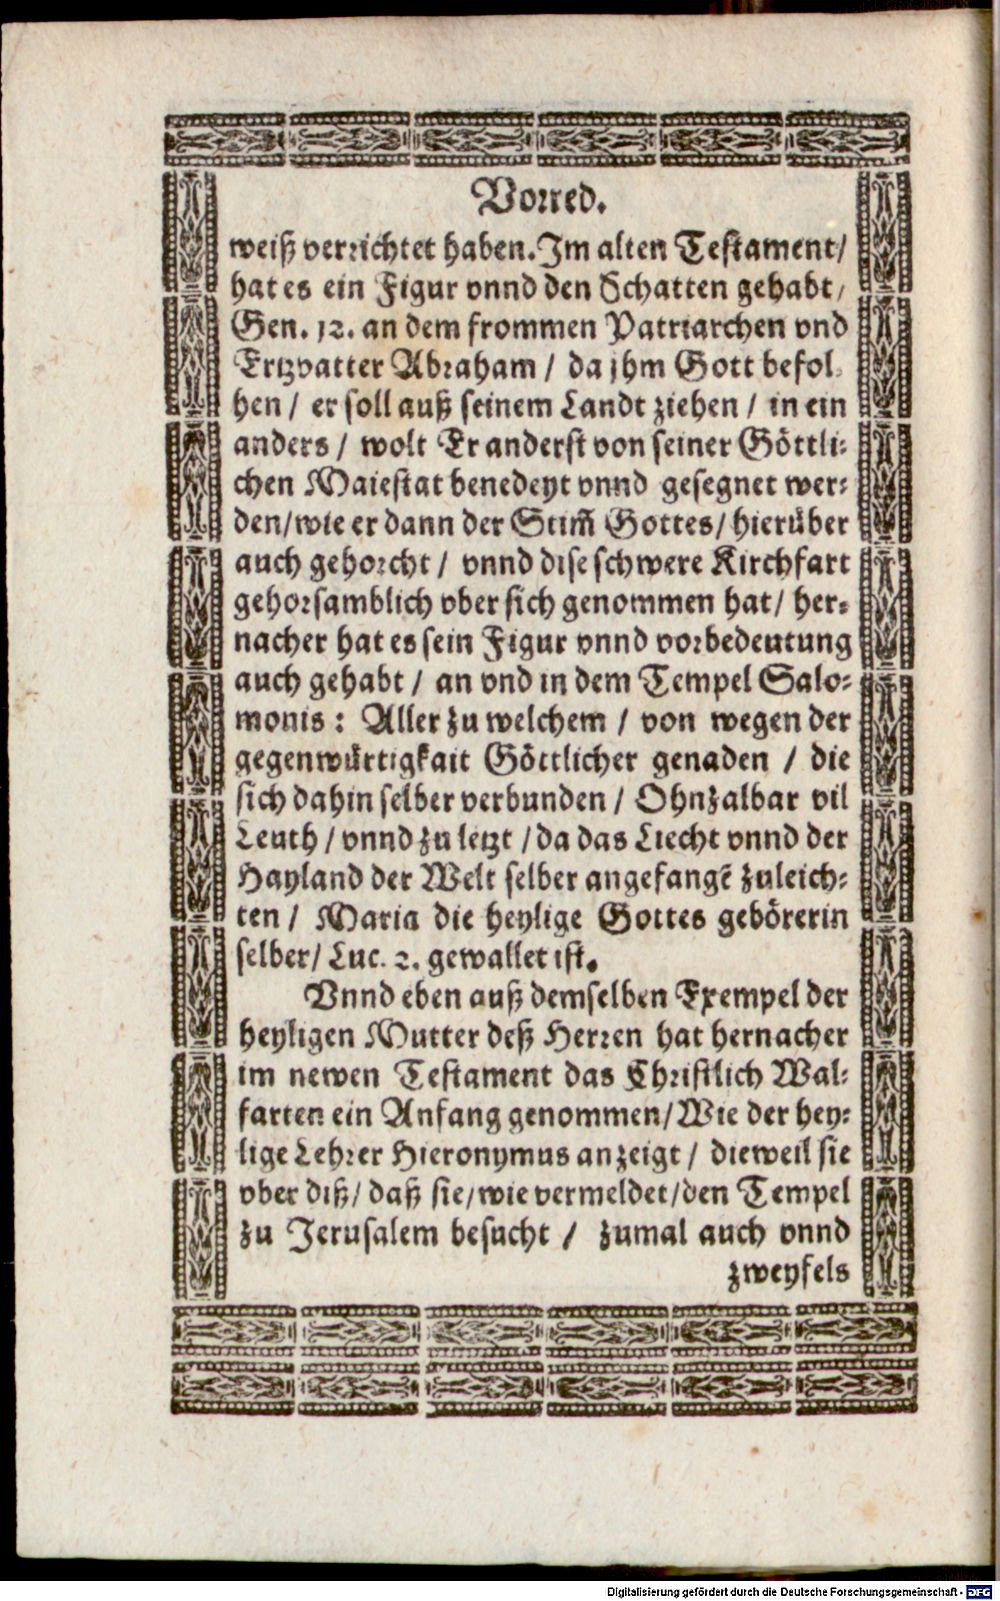 Vorred.
weiß verrichtet haben. Im alten Testament/
hat es ein Figur vnnd den Schatten gehabt/
Gen. 12. an dem frommen Patriarchen vnd
Ertzvatter Abraham / da jhm Gott befol-
hen / er soll auß seinem Landt ziehen / in ein
anders / wolt Er anderst von seiner Göttli-
chen Maiestat benedeyt vnnd gesegnet wer-
den/wie er dann der Stim̃ Gottes/hierüber
auch gehorcht / vnnd dise schwere Kirchfart
gehorsamblich vber sich genommen hat/ her-
nacher hat es sein Figur vnnd vorbedeutung
auch gehabt / an vnd in dem Tempel Salo-
monis: Aller zu welchem / von wegen der
gegenwürtigkait Göttlicher genaden / die
sich dahin selber verbunden / Ohnzalbar vil
Leuth / vnnd zu letzt / da das Liecht vnnd der
Hayland der Welt selber angefangẽ zuleich-
ten / Maria die heylige Gottes gebörerin
selber/ Luc. 2. gewallet ist.
Vnnd eben auß demselben Exempel der
heyligen Mutter deß Herren hat hernacher
im newen Testament das Christlich Wal-
farten ein Anfang genommen/Wie der hey-
lige Lehrer Hieronymus anzeigt / dieweil sie
vber diß/ daß sie/wie vermeldet/den Tempel
zu Jerusalem besucht / zumal auch vnnd
zweyfels
Digitalisierung gefördert durch die Deutsche Forschungsgemeinschaft - DFG